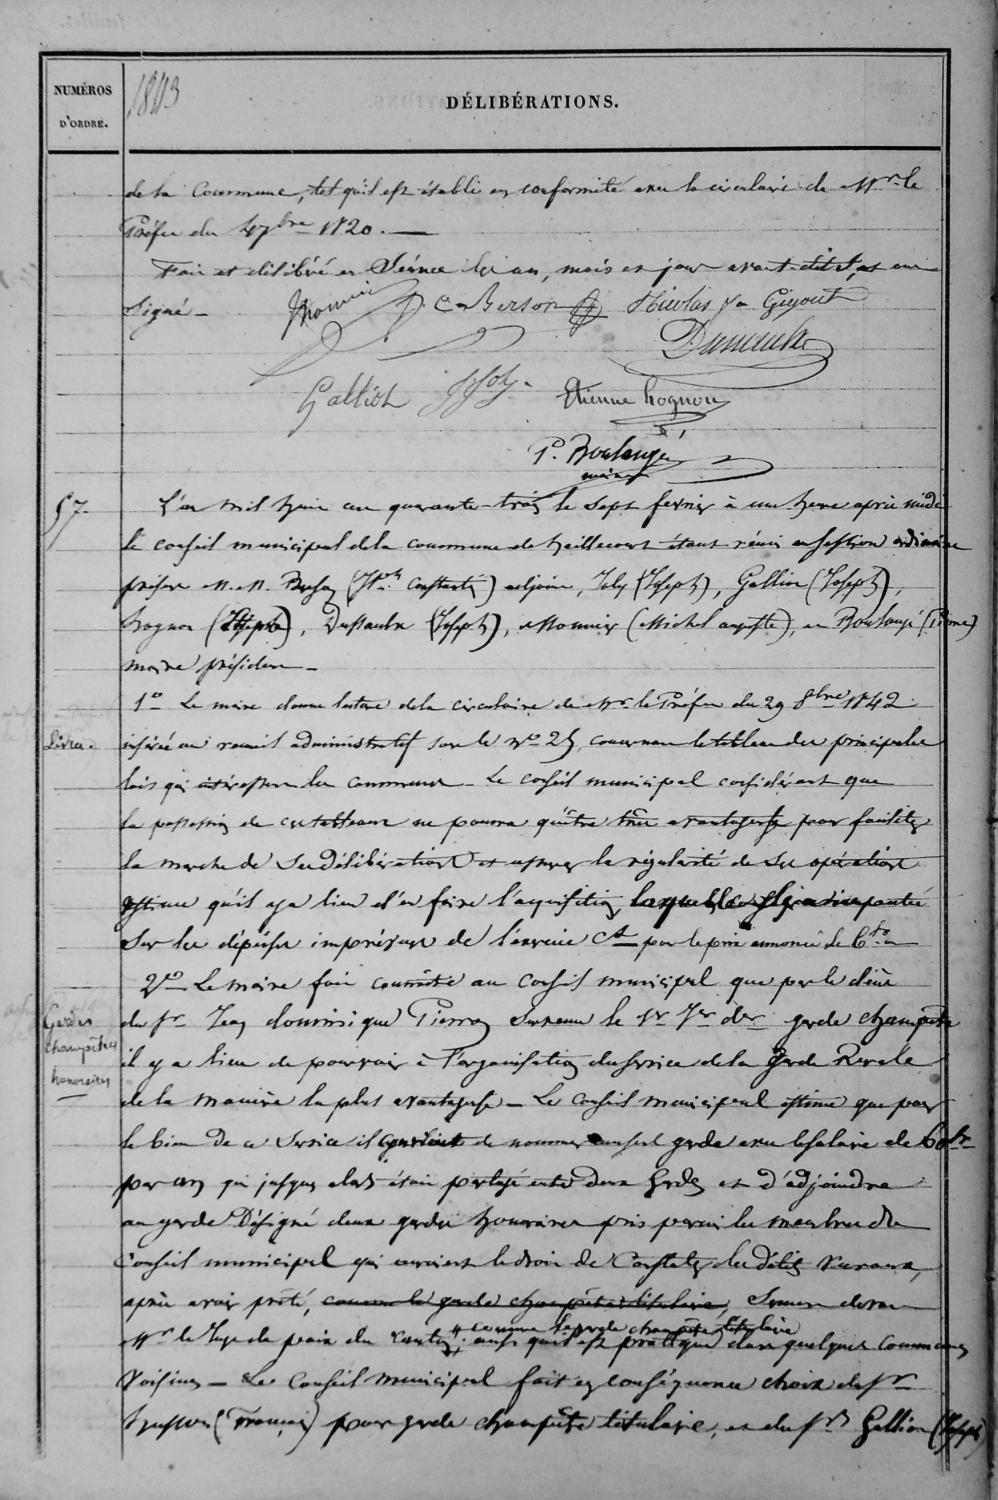 NUMÉROS
D'ORDRE.
1843
DÉLIBÉRATIONS.
de la Commune, tel qu'il est établi en conformité avec la circulaire de Mr le
Préfet du 4 7bre 1820. —
Fait et délibéré en Séance les an, mois et jour avant dits, et ont
Signé —
Monnier C Berson Nicolas Guyout
Galliot J Joly Etienne hognon
P. Boulangé
maire
57.
L'an mil huit cent quarante-trois le sept février à une heure après midi
le conseil municipal de la commune de heillecourt étant réuni en session ordinaire
présens M.M. (Jh ) adjoint, Joly (Joseph), Galliot (Joseph),
hognon , (Joseph), Monnier (Michel auguste), et Boulangé (Pierre)
maire président —
Livres.
1o Le maire donne lecture de la circulaire de Mr le Préfet du 29 8bre 1842
insérée au recueil administratif sous le No 25, concernant le tableau des principales
lois qui intéressent les communes — Le conseil municipal considérant que
la possession de ce tableau ne pourra qu'être très avantageuse pour faciliter
la marche de ses délibérations et assurer la régularité de ses opérations
estime qu'il y a lieu d'en faire l'acquisition laquelle sera imputée
sur les dépenses imprévues de l'exercice Ct pour le prix annoncé de
Gardes
champêtres
honoraires
2o Le maire fait connaître au conseil municipal que par le décès
du Sr Jean dominique Pierron survenu le 1er Jer der garde champêtre
il y a lieu de pourvoir à l'organisation du service de la Garde Rurale
de la manière la plus avantageuse — Le conseil municipal estime que pour
le bien de ce service il convient de nommer un seul garde avec le salaire de 60 fr
par an qui jusqu'alors était partagé entre deux Gardes et d'adjoindre
au garde Désigné deux gardes honoraires pris parmi les membres du
Conseil municipal qui auraient le droit de Constater les délits ruraux,
après avoir prêté, comme le garde champêtre titulaire, Serment devant
+ comme le garde champêtre titulaire
Mr le Juge de paix du canton +; ainsi qu'il est pratiqué dans quelques communes
Voisines — Le Conseil municipal fait en conséquence choix du Sr
husson (François) pour garde champêtre titulaire, et du Sr Galliot (Joseph)